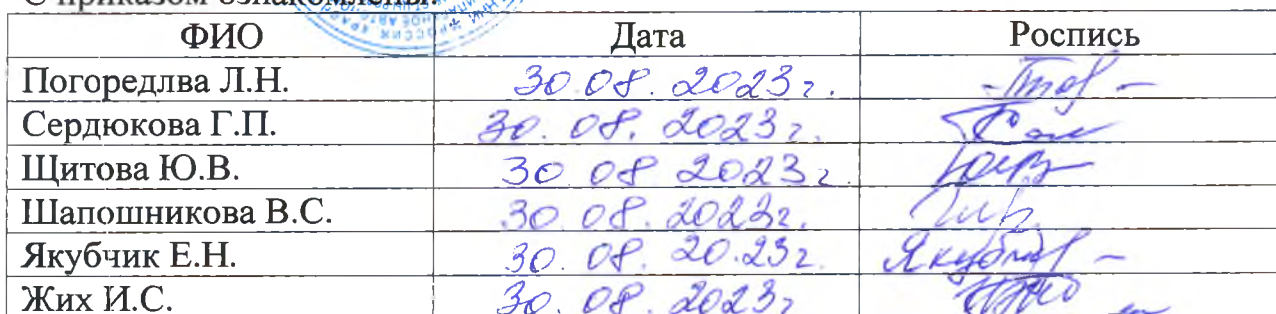 С приказом ознакомлены:
ФИО Дата Роспись
Погоредлва Л.Н. 30.08.2023г.
Сердюкова Г.П. 30.08.2023г.
Щитова Ю.В. 30 08 2023г
Шапошникова В.С. 30.08.2023г.
Якубчик Е.Н. 30.08.20.23г.
Жих И.С. 30.08.2023г